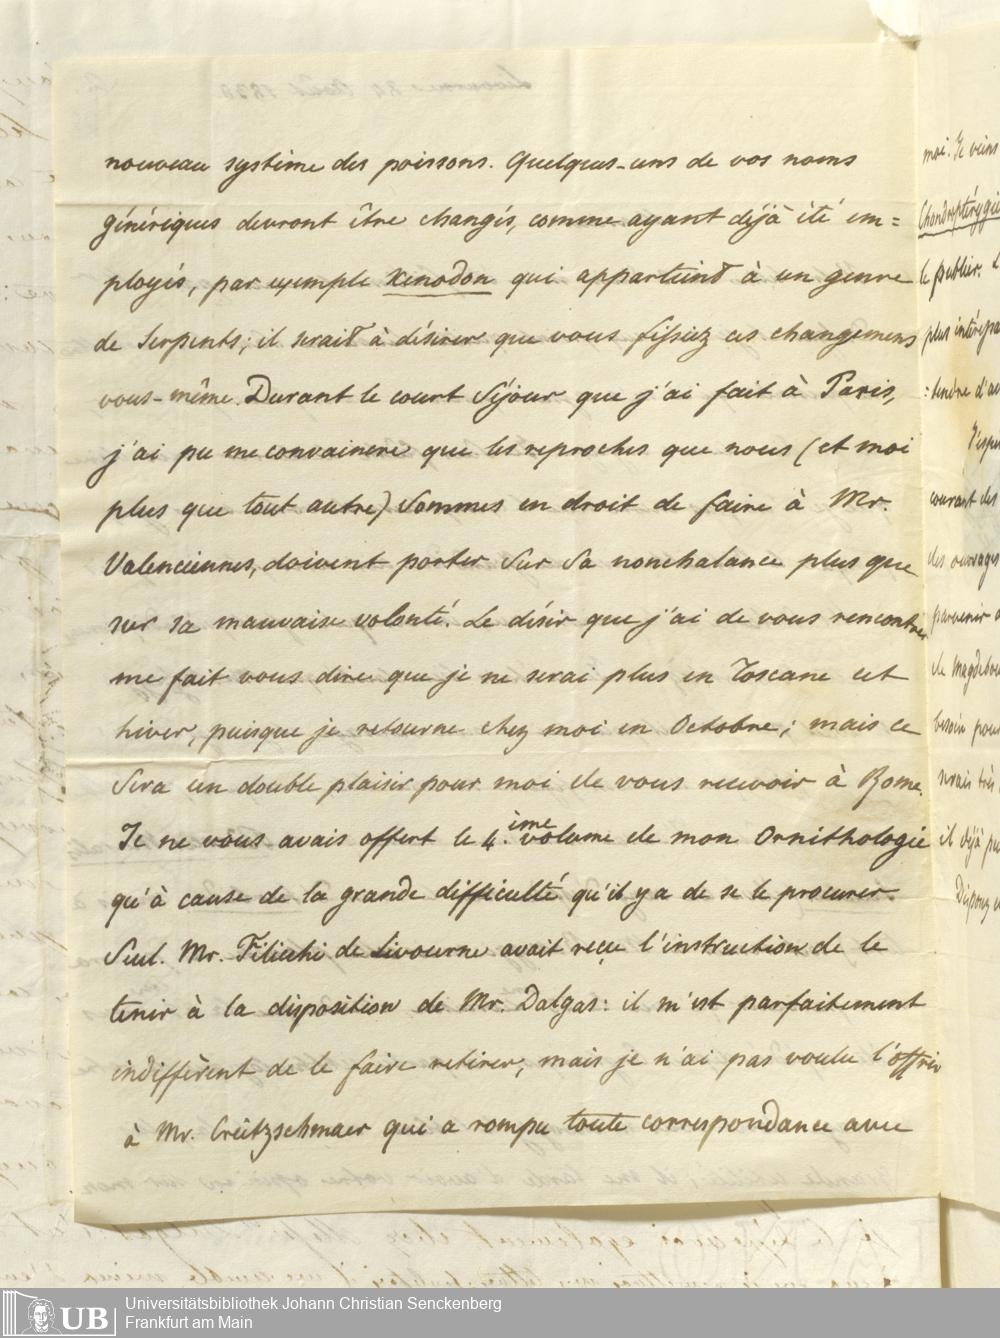 nouveau système des poissons. Quelques-uns de vos noms
génériques devront être changés, comme ayant déjà été em=
ployés, par exemple Xenodon qui appartient à un genre
de Serpents; il serait à désirer que vous fissiez ces changemens
vous-même. Durant le court Séjour que j'ai fait à Paris,
j'ai pu me convaincre que les reproches que nous (et moi
plus que tout autre) Sommes en droit de faire à Mr.
Valenciennes, doivent porter Sur Sa nonchalance plus que
sur sa mauvaise volonté. Le désir que j'ai de vous rencontrer
me fait vous dire que je ne serai plus en Toscane cet
hiver, puisque je retourne chez moi en Octobre; mais ce
Sera un double plaisir pour moi de vous recevoir à Rome.
Je ne vous avais offert le 4.ème volume de mon Ornithologie
qu'à cause de la grande difficulté qu'il y a de se le procurer.
Seul. Mr. Filicchi de Livourne avait reçu l'instruction de le
tenir à la disposition de Mr. Dalgas: il m'est parfaitement
indiffèrent de le faire retirer, mais je n'ai pas voulu l'offrir
à Mr. Creützschmaer qui a rompu toute correspondance avec
moi. Je viens
Chondroptérygie
le publier.
plus intéressa
=tendre d'av
J'espè
courant des
des ouvrages
parvenir
de Magdebou
besoin pour
serais très
il déjà pu
Disposez
UB
Universitätsbibliothek Johann Christian Senckenberg
Frankfurt am Main